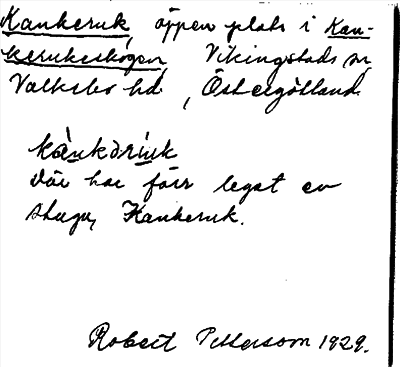 Kankeruk, öppen plats i Kan-
kerukeskogen, Vikingstads sn,
Valkebo hd, Östergötland.
kànkərùk
Där har förr legat en
stuga, Kankeruk.
Robert Pettersson 1929.